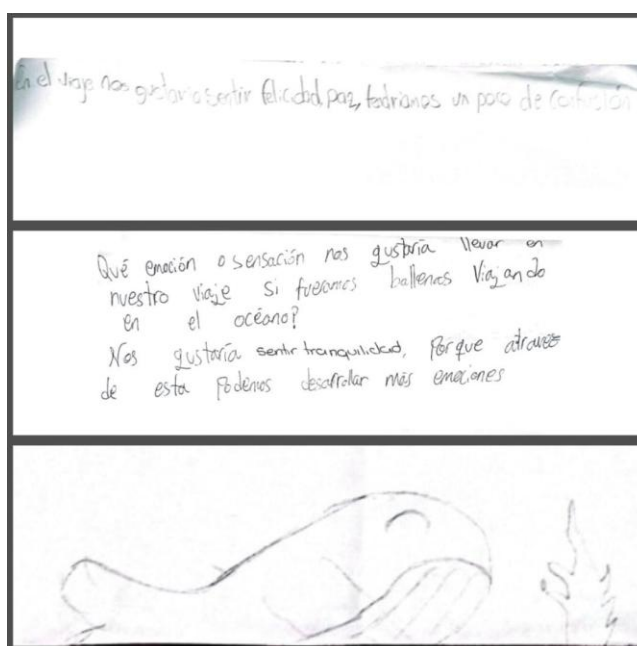 En el viaje nos gustaria sentir felicidad, paz, tendriamos un poco de confusión
Qué emoción o sensación nos gustaría llevar en
nuestro viaje si fueramos ballenas Viajando
en el océano?
Nos gustaría sentir tranquilidad, Porque atraves
de esta Podemos desarrollar más emociones